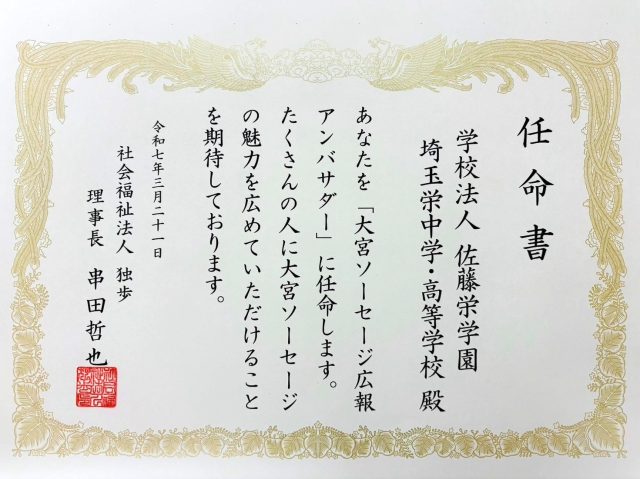 任命書
学校法人 佐藤栄学園
埼玉栄中学・高等学校 殿
あなたを「大宮ソーセージ広報
アンバサダー」に任命します。
たくさんの人に大宮ソーセージ
の魅力を広めていただけること
を期待しております。
令和七年三月二十一日
社会福祉法人 独歩
理事長 串田哲也